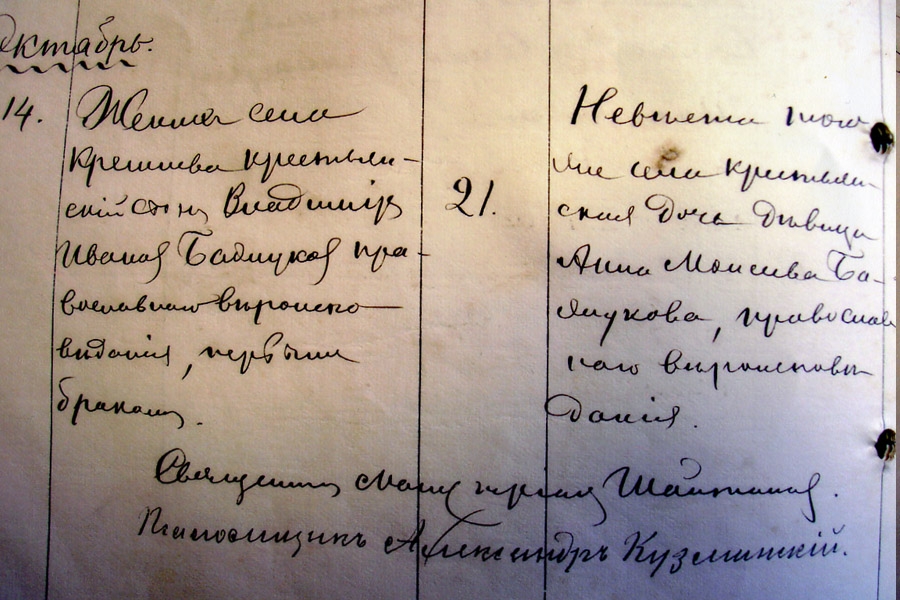 Октябрь.
14.
Женихъ села
Крещиева крестьян-
скій сынъ Владиміръ
Ивановъ Бадмуковъ пра-
вославнаго вѣроиспо-
вѣданія, первымъ
бракомъ.
21.
Невѣста того
же села крестьян-
ская дочь дѣвица
Анна Моисеева Ба-
дмукова, православ
наго вѣроисповѣ
данія.
Священникъ
Псаломщикъ Александръ Кузминскій.